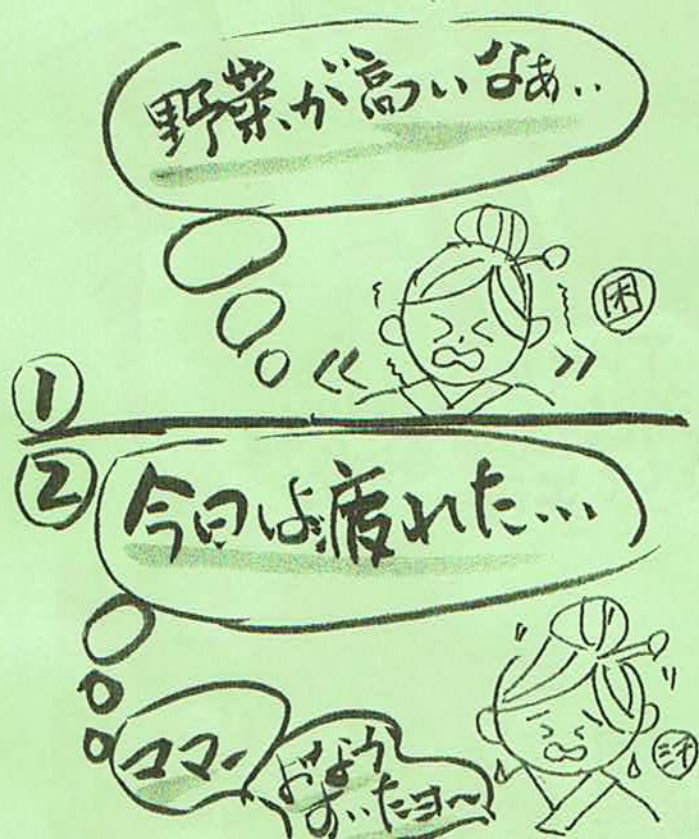 野菜が高いなぁ..
困
①
②
今日は疲れた...
ママー
おなか
すいたヨ〜
汗